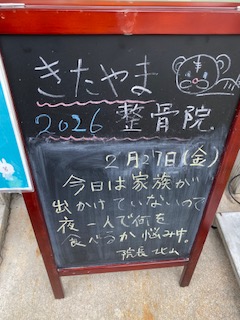 きたやま
2026 整骨院
2月27日(金)
今日は家族が
出かけていないので
夜一人で何を
食べるか悩み中。
院長 北山